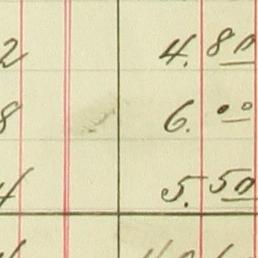 2 4.80
8 6.00
4 5.50